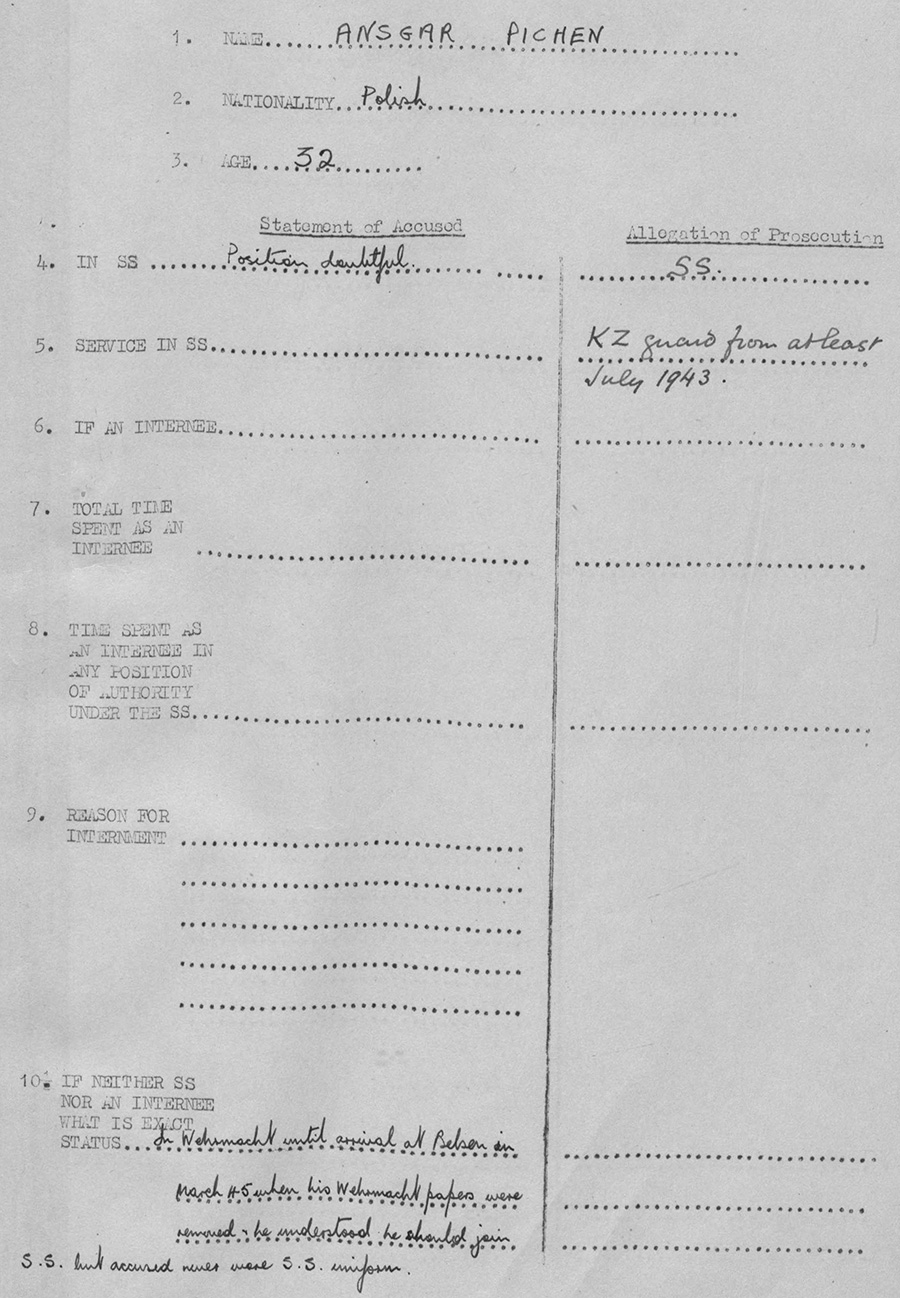 1. NAME...... ANSGAR PICHEN ..............
2. NATIONALITY.. Polish ..............................
3. AGE.... 32 .........
Statement of Accused
Allegation of Prosecution
4. IN SS ....... Position doubtful. ...... ..... ....... SS. ...............
5. SERVICE IN SS.................................. KZ guard from at least
July 1943.
6. IF AN INTERNEE.................................
7. TOTAL TIME
SPENT AS AN
INTERNEE ..................................
8. TIME SPENT AS
AN INTERNEE IN
ANY POSITION
OF AUTHORITY
UNDER THE SS..................................
9. REASON FOR
INTERNMENT ...................................
...................................
...................................
...................................
...................................
10. IF NEITHER SS
NOR AN INTERNEE
WHAT IS EXACT
STATUS... In Wehrmacht until arrival at Belsen in
March 45 when his Wehrmacht papers were
removed & he understood he should join
S.S. but accused never wore S.S. uniform.